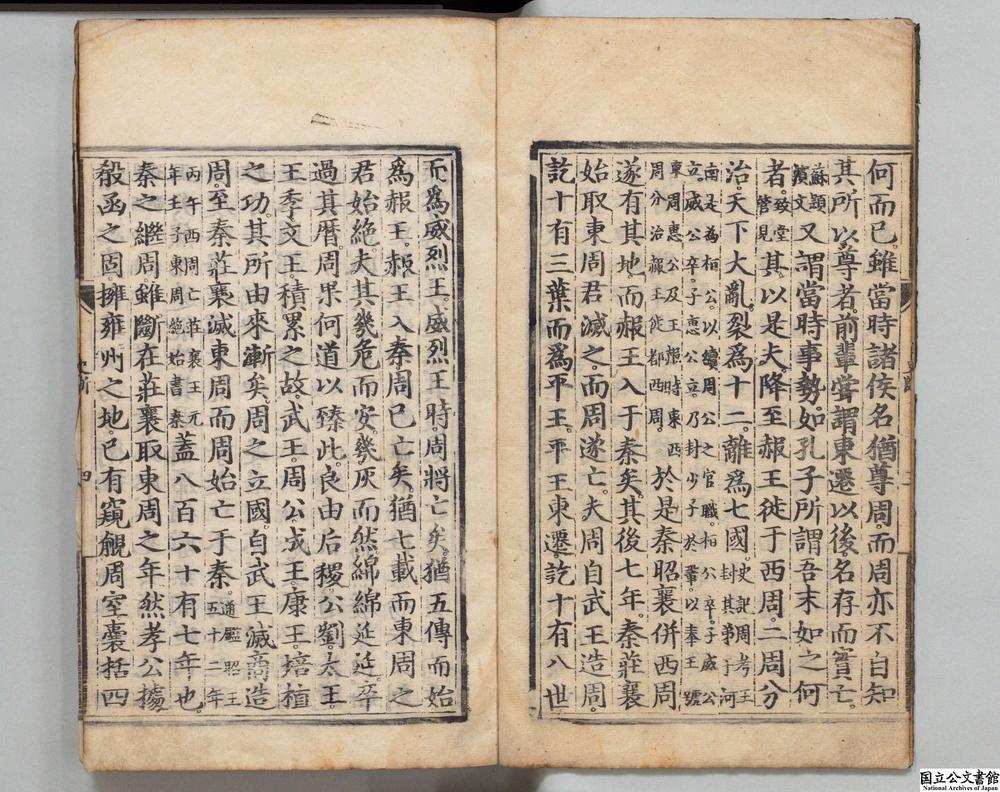 何而已。雖當時諸侯名猶尊周。而周亦不自知
其所以尊者。前輩嘗謂東遷以後名存而實亡。
蘇穎濱文又謂當時事勢。如孔子所謂吾末如之何
者。致堂管見其以是夫。降至赧王徙于西周。二周分
治。天下大亂。裂爲十二。離爲七國。史記周考王封其弟于河
南。是為桓公。以續周公之官職。桓公卒。子威公
立。威公卒。子惠公立。乃封少子於鞏。以奉王號
東周惠公。及王赧時東西
周分治。赧王徙都西周。於是秦昭襄併西周。
遂有其地。而赧王入于秦矣。其後七年。秦莊襄
始取東周君滅之。而周遂亡。夫周自武王造周。
訖十有三葉而爲平王。平王東遷。訖十有八世
而爲威烈王。威烈王時。周將亡矣。猶五傳而始
爲赧王。赧王入秦。周已亡矣。猶七載而東周之
君始絶。夫其幾危而安。幾灰而然。綿綿延延。卒
過其曆。周果何道以臻此。良由后稷。公劉。太王。
王季。文王。積累之故。武王。周公。成王。康王。培植
之功。其所由來漸矣。周之立國。自武王滅商造
周。至秦莊襄滅東周而周始亡于秦。通鑑昭王五十二年
丙午西周亡莊襄王元
年壬子東周絶始書秦蓋八百六十有七年也。
秦之繼周。雖斷在莊襄取東周之年。然孝公據
殽函之固。擁雍州之地。已有窺覦周室囊括四
四
国立公文書館
National Archives of Japan